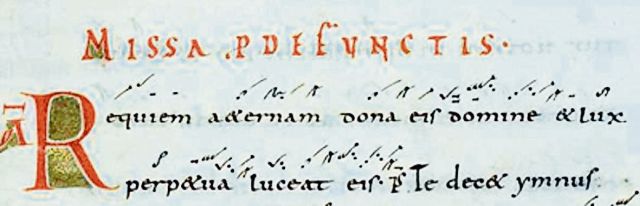 MISSA P DEFUNCTIS.
A Requiem aeternam dona eis domine & lux
perp&ua luceat eis. P Te dec& ymnus